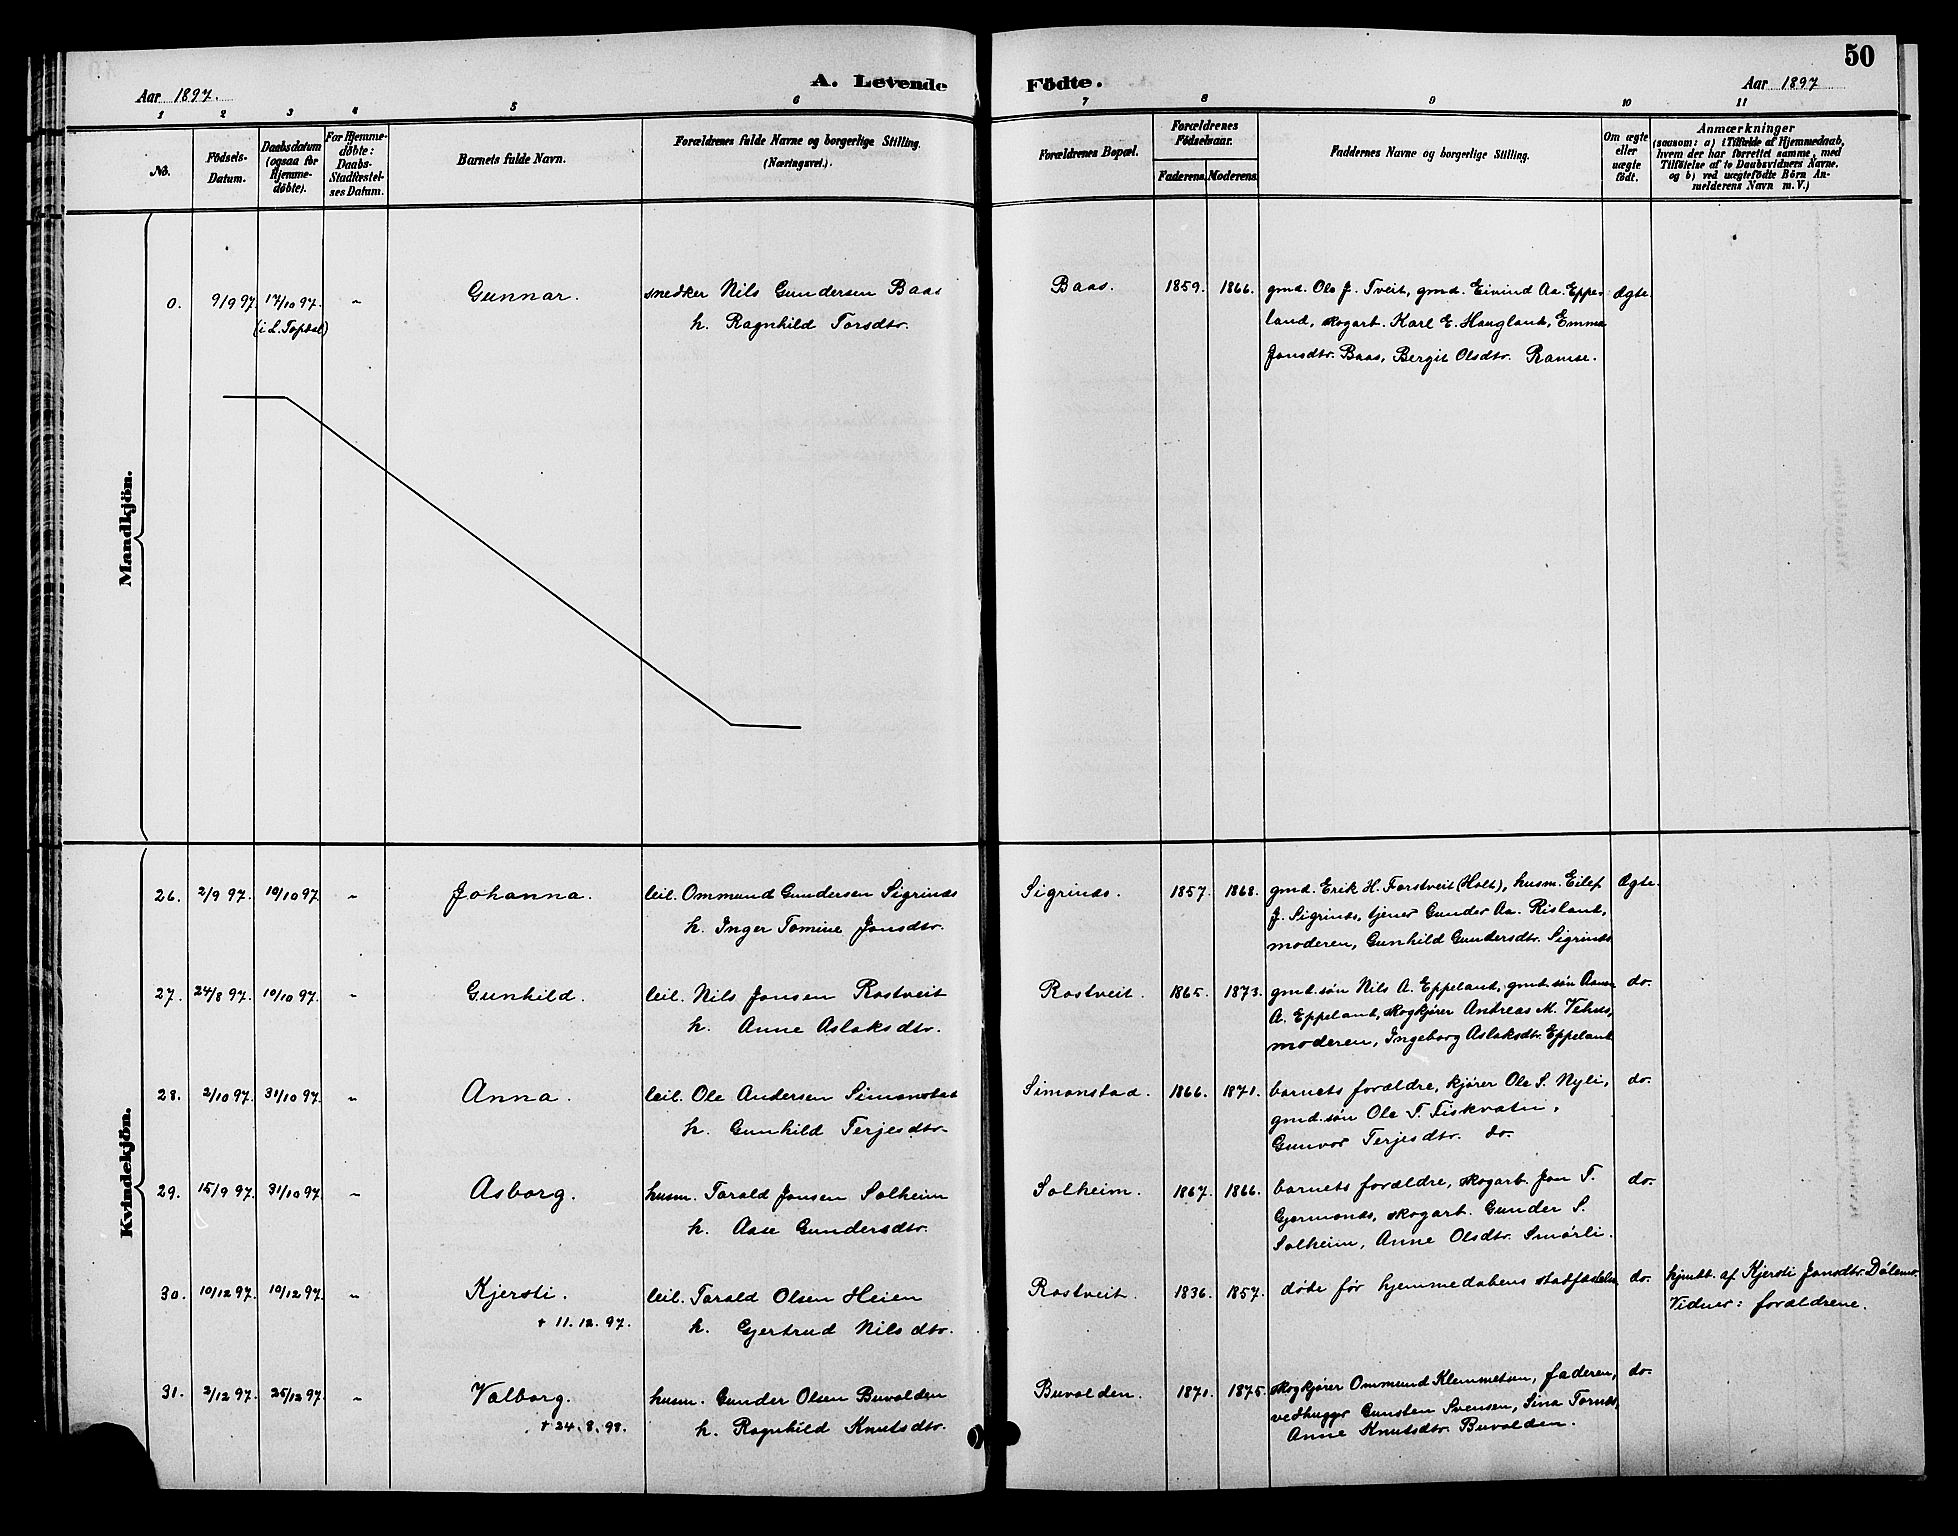 50
Aar 1897.
A. Levende Födte.
Aar 1897
1 2 3 4 5 6 7 8 9 10 11
No.
Fødsels-
Datum.
Daabsdatum
(ogsaa for
Hjemme-
døbte).
For Hjemme-
døbte:
Daabs-
Stadfæstel-
ses Datum.
Barnets fulde Navn.
Forældrenes fulde Navne og borgerlige Stilling.
(Næringsvei.)
Forældrenes Bopæl.
Forældrenes
Fødselsaar.
Faderens. Moderens.
Faddernes Navne og borgerlige Stilling.
Om ægte
eller
uægte
født.
Anmærkninger
(saasom: a) i Tilfælde af Hjemmedaab,
hvem der har forrettet samme, med
Tilføielse af to Daabsvidners Navne.
og b) ved uægtefødte Börn An-
melderens Navn m. V.)
Mandkjön.
0. 9/9 97. 17/10 97. " Gunnar. snedker Nils Gundersen Baas Baas. 1859. 1866. gmd. Ole J. Tveit, gmd. Eivind Aa. Eppe- Ægte.
(i L. Topdal) h. Ragnhild Torsdtr. land, skogarb. Karl E. Haugland, Emma
Jonsdtr. Baas, Bergit Olsdtr. Ramse.
Kvindekjön.
26. 2/9 97. 10/10 97. " Johanna. leil. Ommund Gundersen Sigrinds Sigrinds. 1857. 1868. gmd. Erik H. Forstveit (Holt), husm. Eilef Ægte.
h. Inger Tomine Jonsdtr. J. Sigrinds, tjener Gunder Aa. Risland,
moderen, Gunhild Gundersdtr. Sigrinds
27. 24/8 97. 10/10 97. " Gunhild. leil. Nils Jonsen Rostveit Rostveit. 1865. 1873. gmd. søn Nils A. Eppeland, gmd. søn Aanon do.
h. Anne Aslaksdtr. A. Eppeland, skogkjører Andreas M. Vehus,
moderen, Ingeborg Aslaksdtr. Eppeland
28. 2/10 97. 31/10 97. " Anna. leil. Ole Andersen Simonstad Simonstad. 1866. 1871. barnets forældre, kjører Ole S. Nyli, do.
h. Gunhild Terjesdtr. gmd. søn Ole T. Fiskvatn,
Gunvor Terjesdtr. do.
29. 15/9 97. 31/10 97. " Asborg. husm. Tarald Jonsen Solheim Solheim. 1867. 1866. barnets forældre, skogarb. Jon T. do.
h. Aase Gundersdtr. Gjermonds, skogarb. Gunder S.
Solheim, Anne Olsdtr. Smørli.
30. 10/12 97. 10/12 97. " Kjersti. leil. Tarald Olsen Heien Rostveit. 1836. 1857. døde før hjemmedabens stadfæstelse do. hjmdt. af Kjersti Jonsdtr. Dölemo.
+ 11.12.97. h. Gjertrud Nilsdtr. Vidner: forældrene.
31. 2/12 97. 25/12 97. " Valborg. husm. Gunder Olsen Buvolden Buvolden. 1871. 1875. skogkjører Ommund Klemmetsen, faderen, do.
+ 24.8.98. h. Ragnhild Knutsdtr. vedhugger Gunsten Svensen, Sina
Anne Knutsdtr. Buvolden.